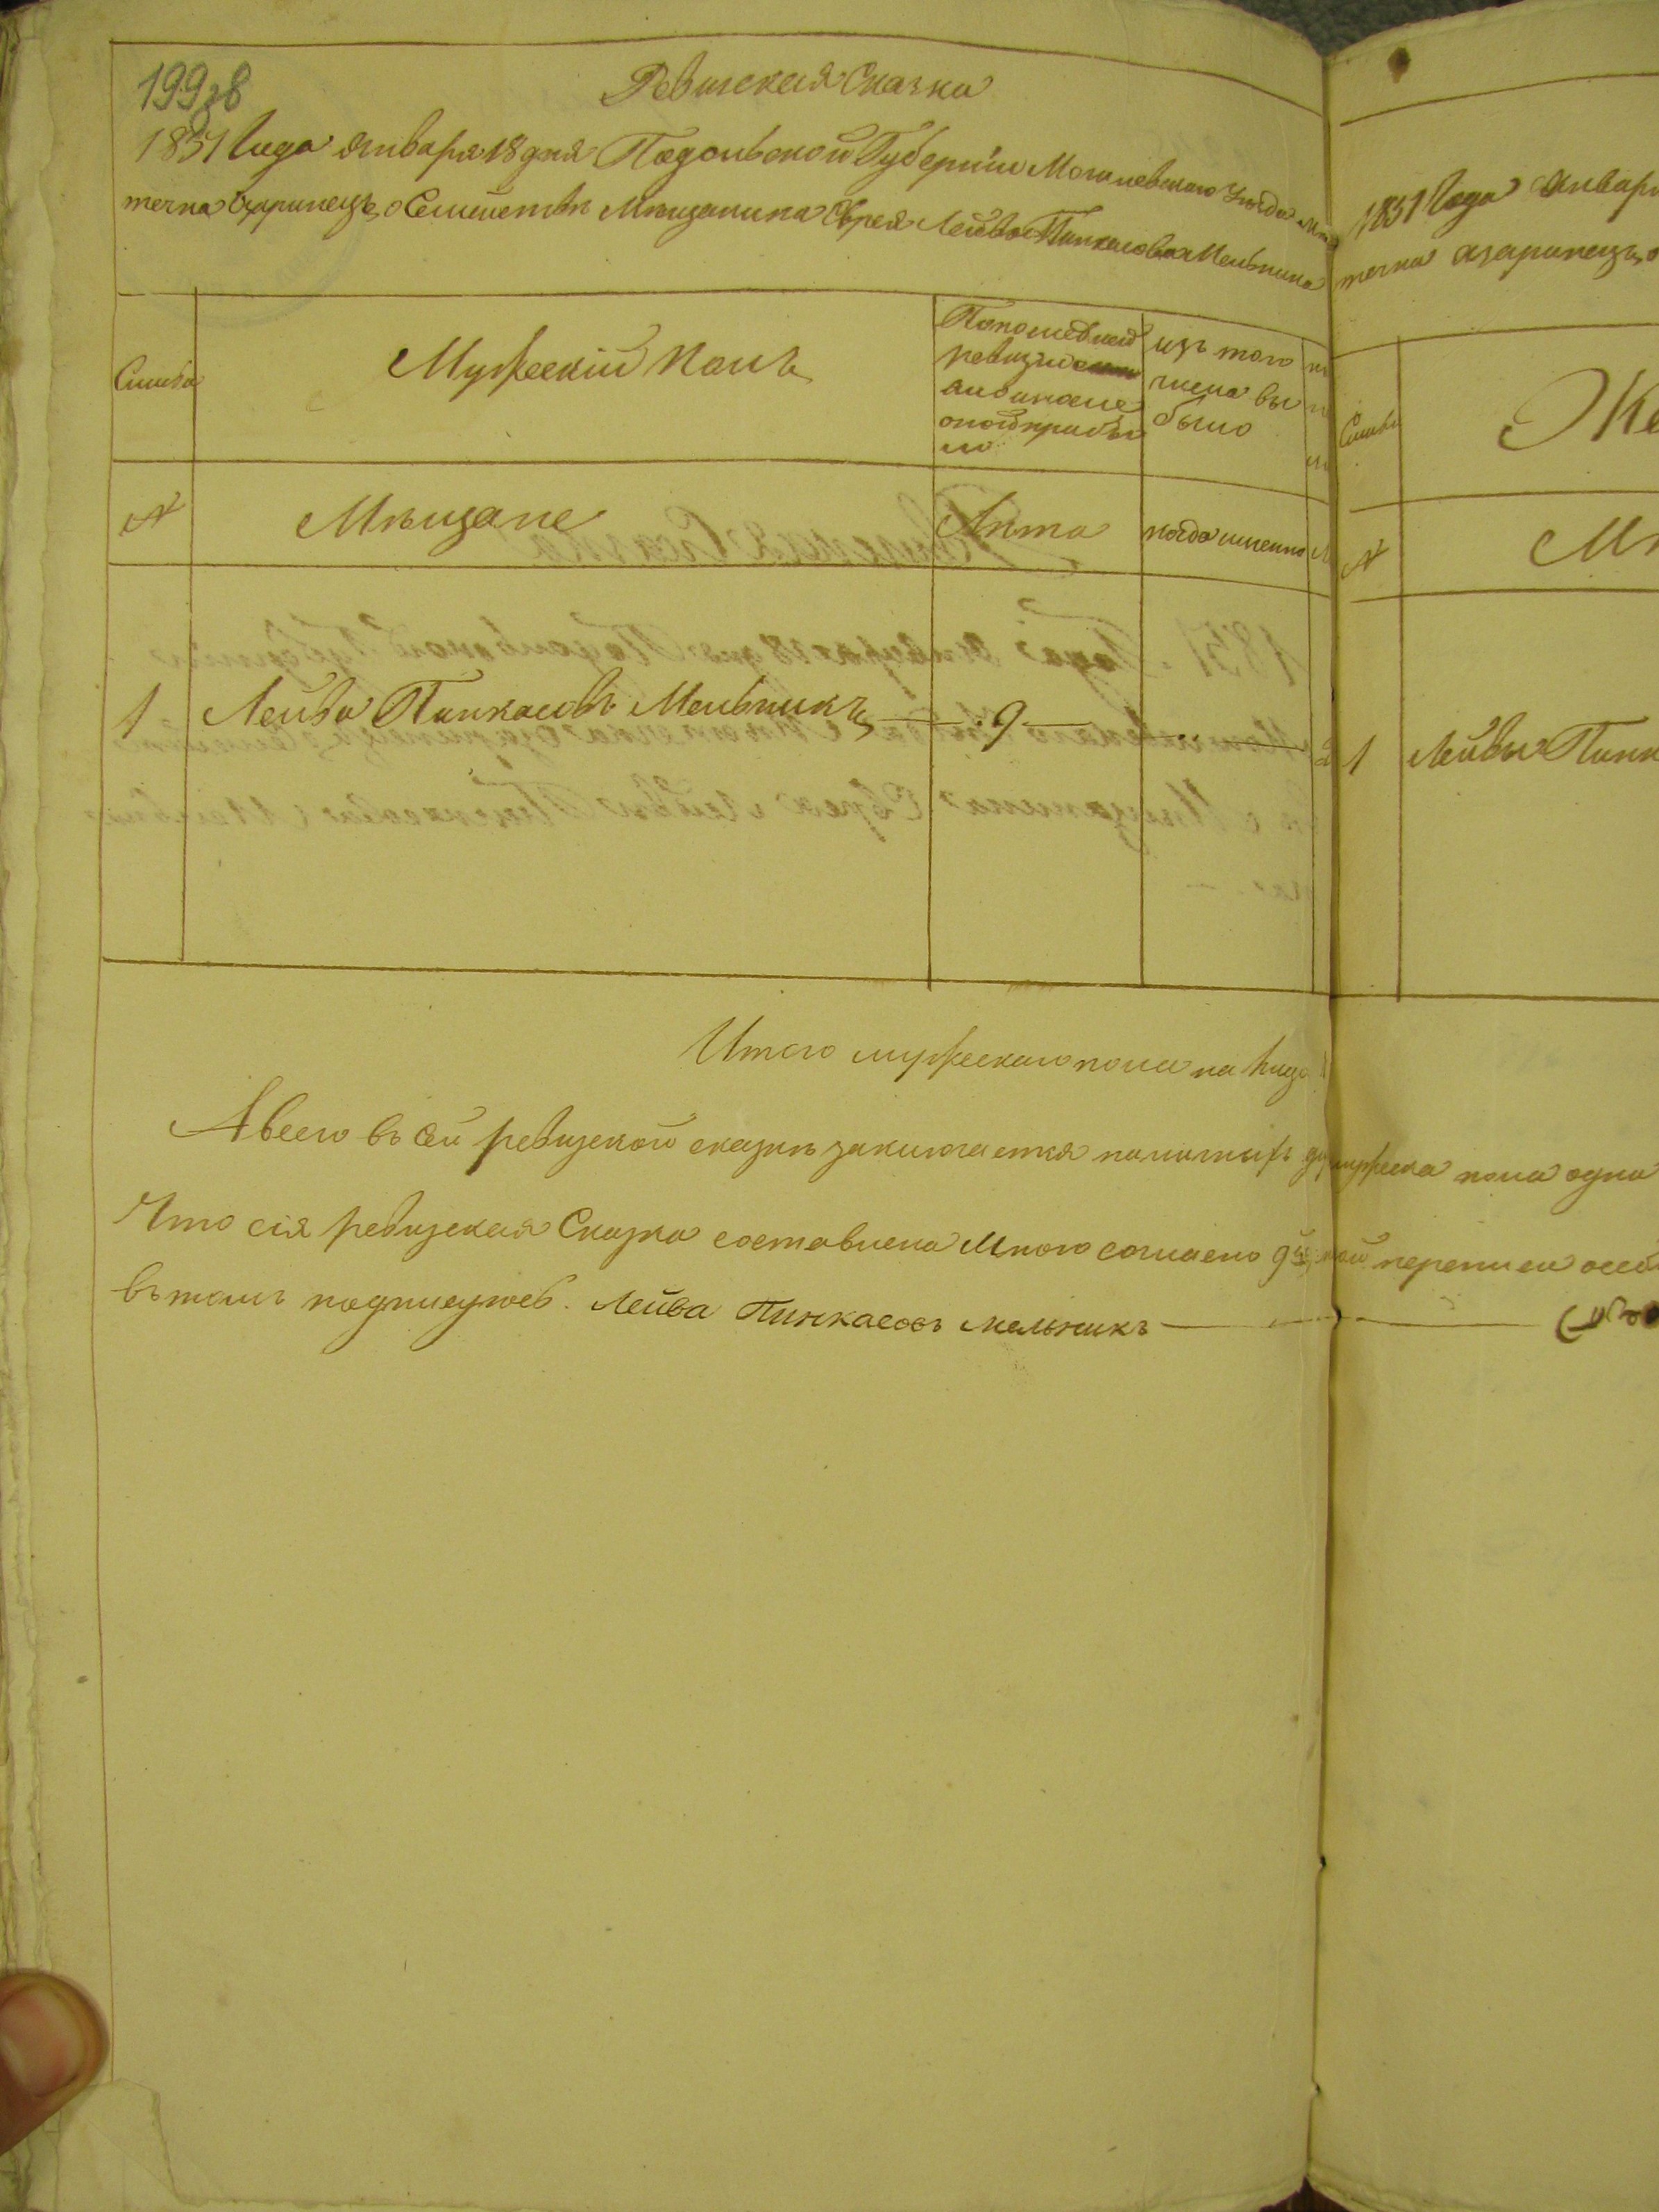 199зв
Ревизская Сказка
1851 Года Января 18 дня Подольской Губернiи Могилевского Уезда Мѣс
течка Озаринецъ, о Семействѣ Мѣщанина Еврея Лейбы Пинкасова Мельника
Семьи
Мужескiй полъ
По последней
ревизiи
или после
оной прибы
ло
изъ того
числа вы
было
№
Мѣщане
Лѣта
когда именно
1 Лейба Пинкасовъ Мельникъ 9
Итого мужескаго пола на лицо
А всего въ сей ревизской сказкѣ заключается мужеска пола одна
Что сiя ревизская Сказка составлена Мною согласно 9й переписи
въ томъ подписуюсь. Лейба Пинкасовъ Мельникъ
1851 Года Января
течка Озаринецъ, о
Семьи
Же
№
Мѣ
1 Лейбы Пинк